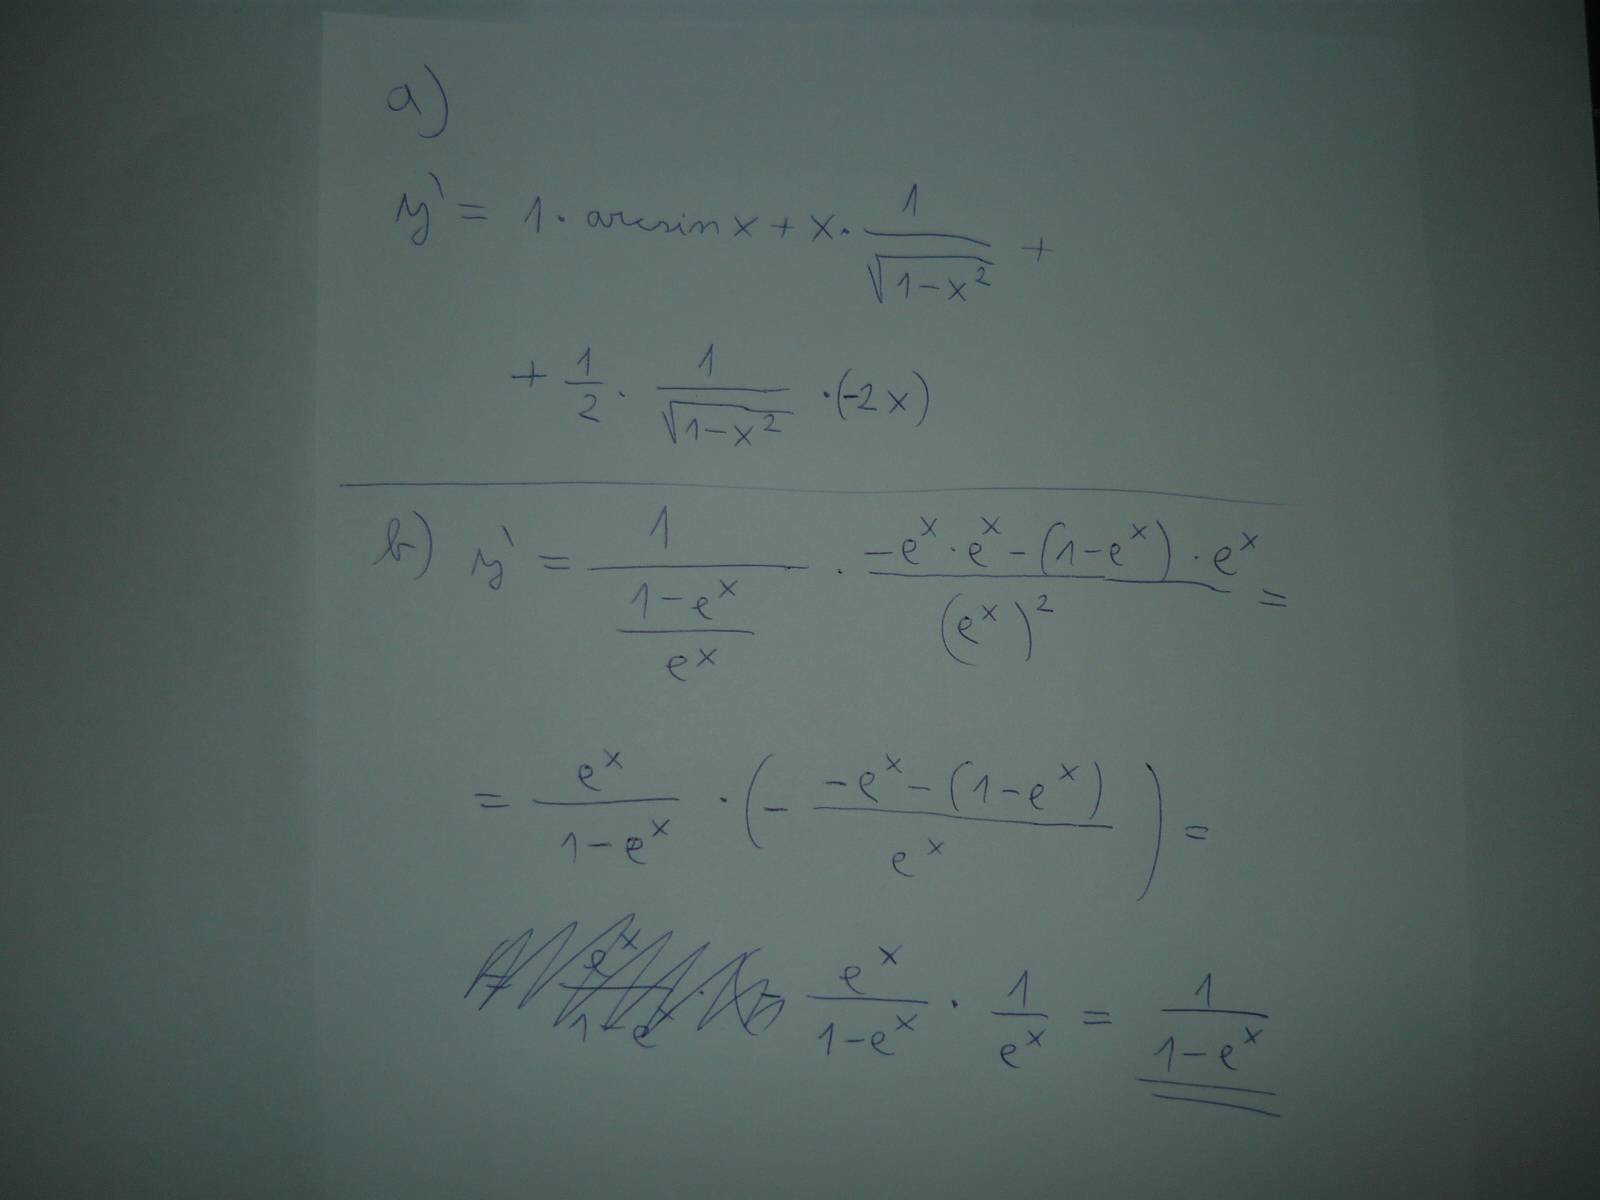 a)
y' = 1 · arcsin x + x · 1/√(1-x²) +
+ 1/2 · 1/√(1-x²) · (-2x)
b) y' = 1/((1-e^x)/e^x) · (-e^x · e^x - (1-e^x) · e^x)/(e^x)² =
= e^x/(1-e^x) · (- (-e^x - (1-e^x))/e^x) =
e^x/(1-e^x) · 1/e^x = 1/(1-e^x)